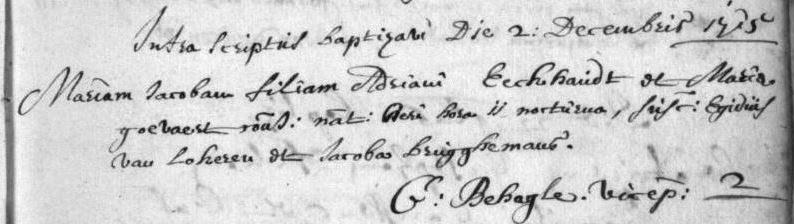 Infra scriptus baptizavi Die 2: Decembris 1715
Mariam Jacobam filiam Adriani Eechhaudt et Mariæ
goevaert Conj: nat: heri hora 11 nocturna, susc: Egidius
van Lokeren et Jacoba brugghemans.
G: Behagle. vicep: 2